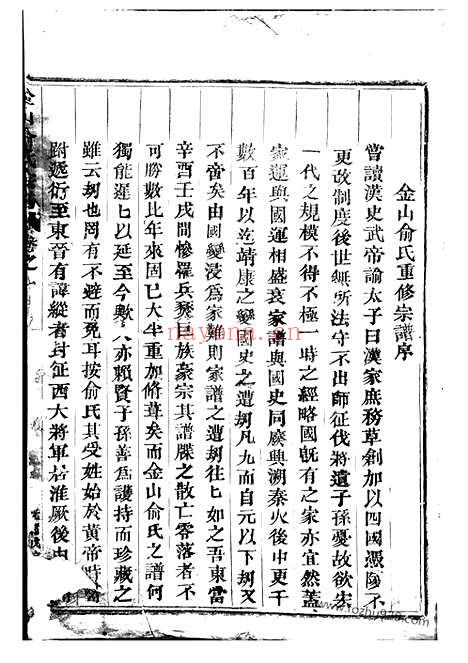 金山俞氏重修宗譜序
嘗讀漢史武帝諭太子曰漢家庶務草創加以四國憑陵不
更改制度後世無所法守不出師征伐將遺子孫憂故欲宏
一代之規模不得不極一時之經略國既有之家亦宜然蓋
家運與國運相盛衰家譜與國史同廢興溯秦火後中更千
數百年以迄靖康之變國史之遭刼凡九而自元以下刼又
不啻矣由國變浸為家難則家譜之遭刼往匕如之吾東當
辛酉壬戌間慘罹兵燹巨族豪宗其譜牒之散亡零落者不
可勝數比年來固已大半重加脩葺矣而金山俞氏之譜何
獨能遲匕以延至今歟亦賴賢子孫善為護持而珍藏之
雖云刼也罔有不避而免耳按俞氏其受姓始於黃帝時
跗遞衍至東晉有諱縱者封征西大將軍居淮厥後由
金山俞氏
卷之
nayona.cn
www.fozhu920.com